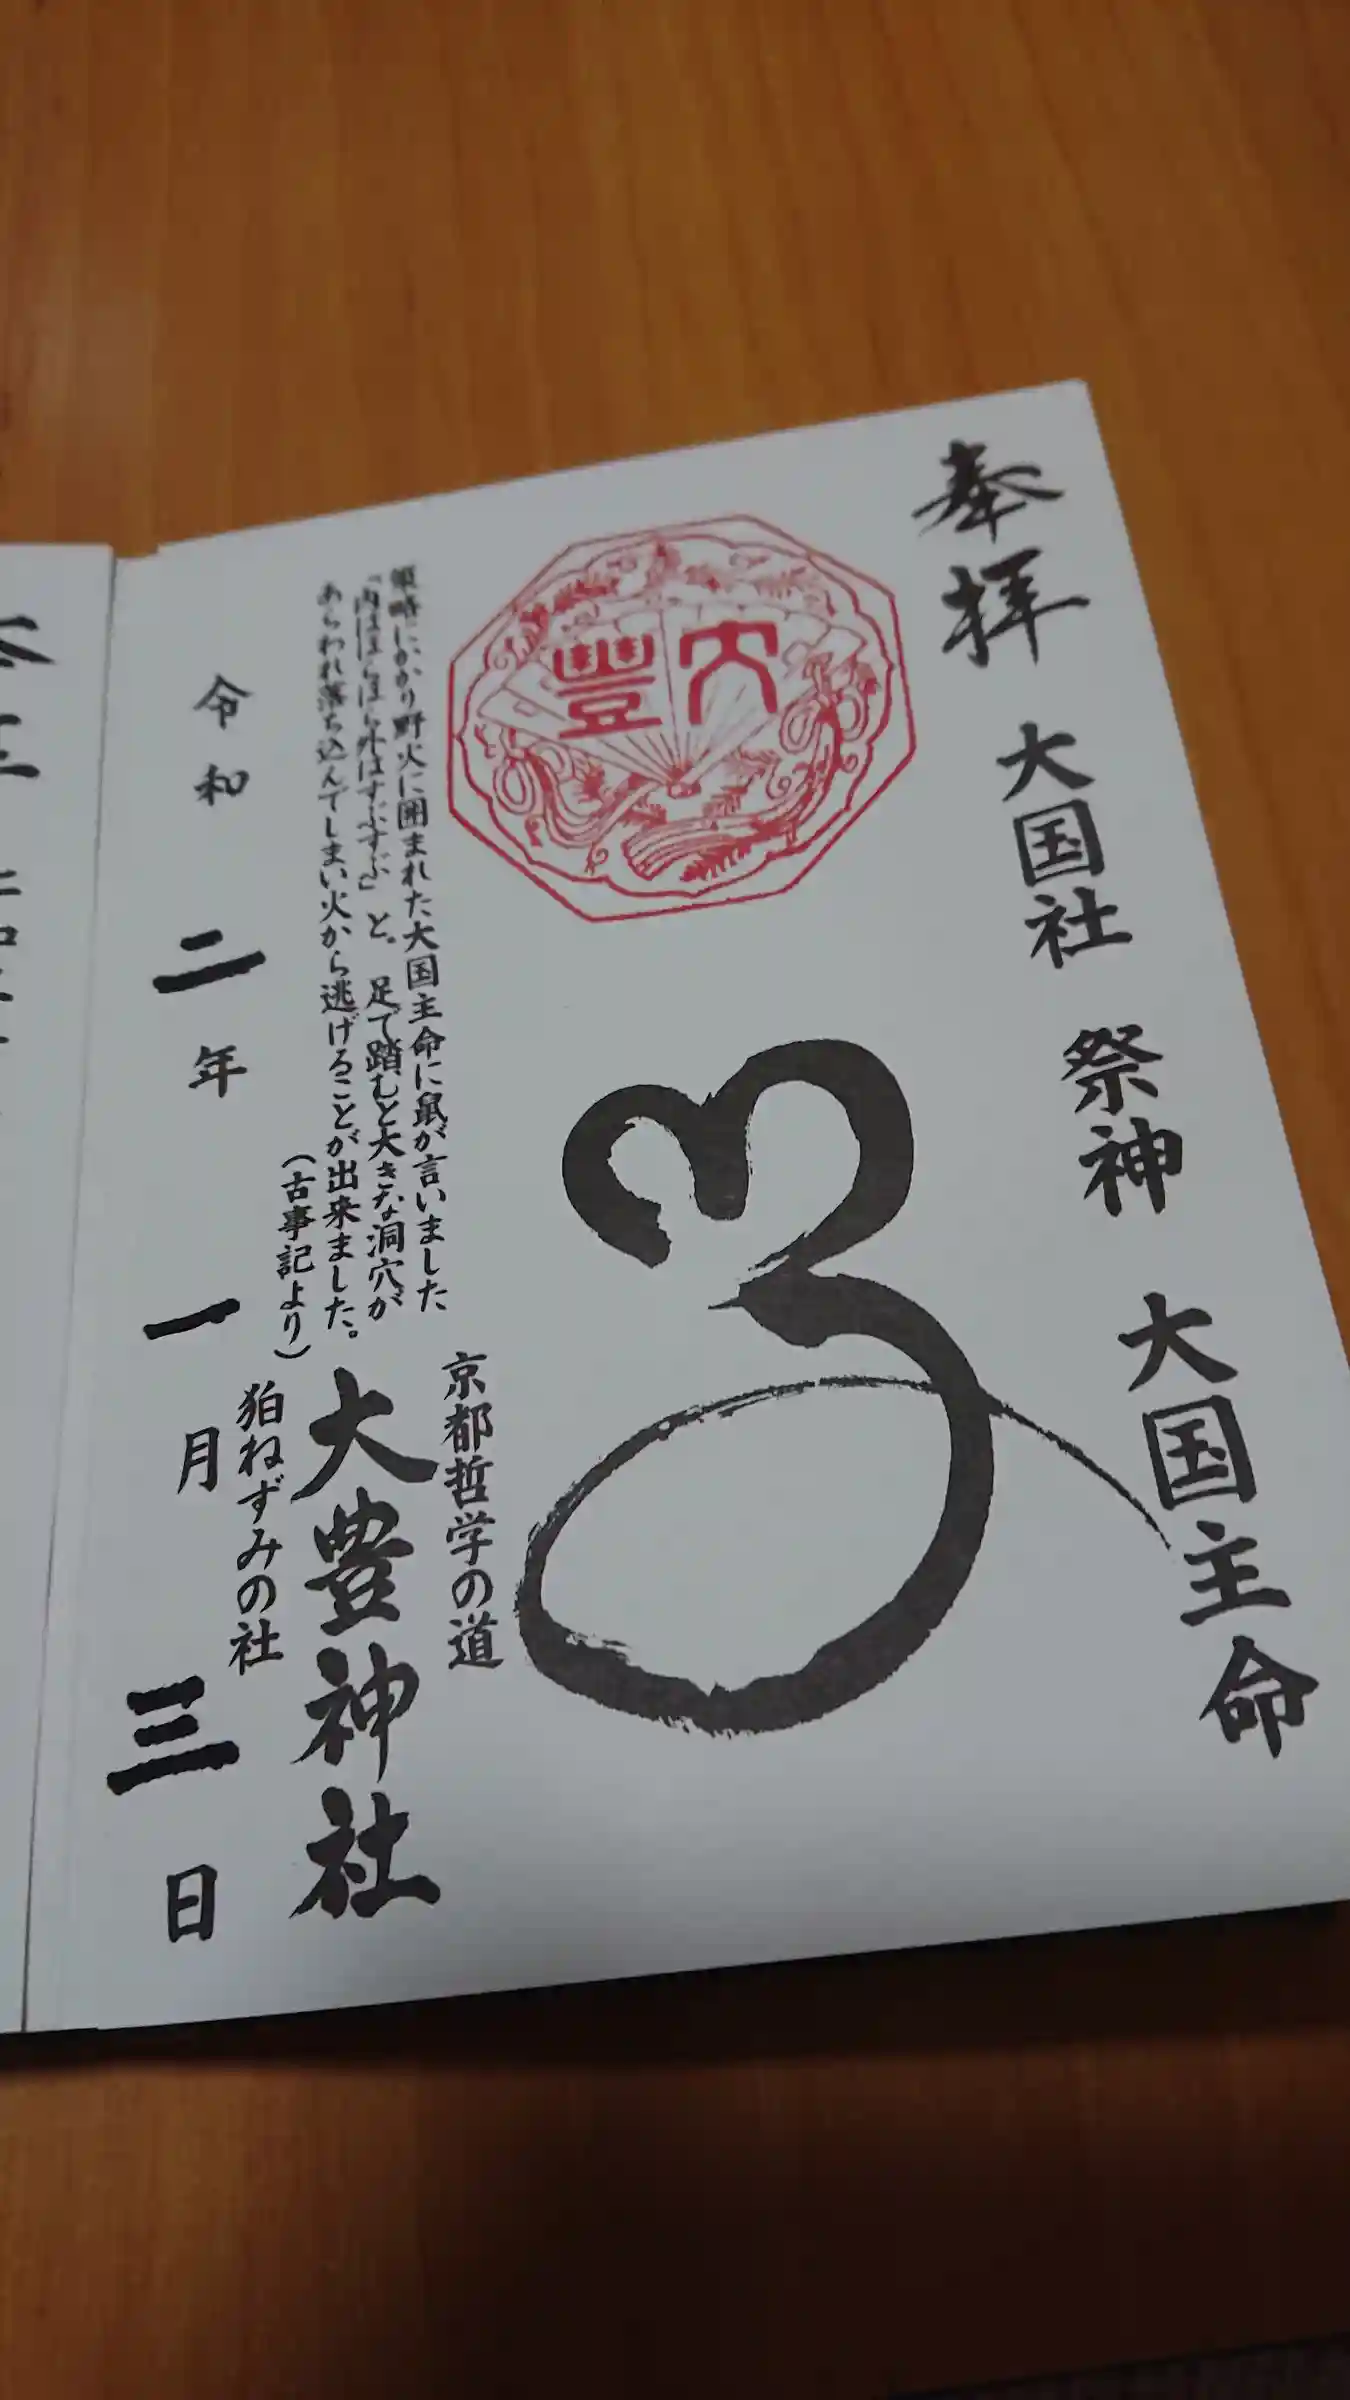 奉拝
大国社 祭神 大国主命
大豊
京都哲学の道
策略にかかり野火に囲まれた大国主命に鼠が言いました
「内はほらほら外はすぶすぶ」と。足で踏むと大きな洞穴が
あらわれ落ち込んでしまい火から逃げることが出来ました。
(古事記より)
大豊神社
狛ねずみの社
令和二年一月三日